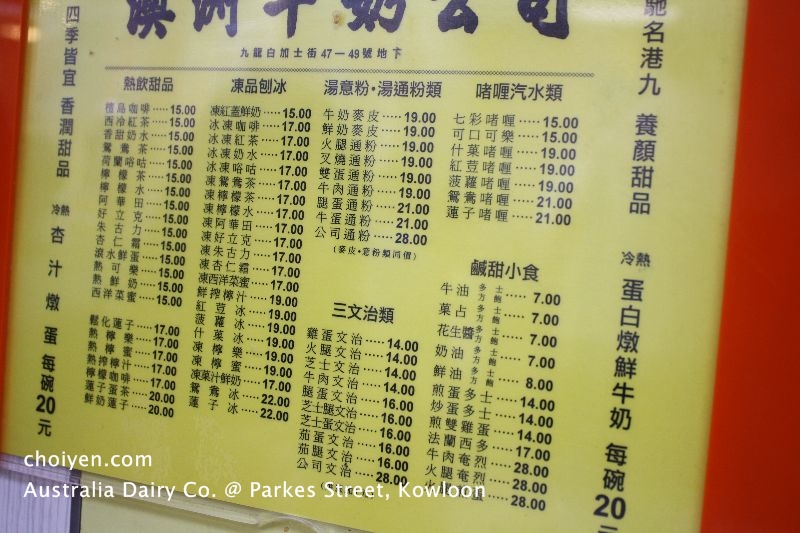 澳洲牛奶公司
九龍白加士街47－49號地下
四季皆宜 香潤甜品
冷熱 杏汁燉蛋 每碗20元
熱飲甜品
檀島咖啡 15.00
西冷紅茶 15.00
香甜奶水 15.00
鴛鴦茶 15.00
荷蘭唂咕 15.00
檸檬茶 15.00
檸檬水 15.00
阿華田 15.00
好立克 15.00
朱古力 15.00
杏仁霜 15.00
滾水鮮蛋 15.00
熱可樂 15.00
熱鮮奶 15.00
西洋菜蜜 15.00
鬆化蓮子 17.00
熱檸樂 17.00
熱檸蜜 17.00
熱搾檸汁 17.00
熱檸咖啡 17.00
檸檬蛋茶 20.00
蓮子 20.00
鮮奶蓮子 20.00
凍品刨冰
凍紅蓋鮮奶 15.00
冰凍咖啡 17.00
冰凍紅茶 17.00
冰凍奶水 17.00
冰凍唂咕 17.00
凍鴛鴦茶 17.00
凍檸檬茶 17.00
凍檸檬水 17.00
凍阿華田 17.00
凍好立克 17.00
凍朱古力 17.00
凍杏仁霜 17.00
凍西洋菜蜜 17.00
鮮搾檸汁 19.00
紅荳冰 19.00
菠蘿冰 19.00
什菓冰 19.00
凍檸樂 19.00
凍檸蜜 19.00
凍菓汁鮮奶 17.00
鴛鴦冰 22.00
蓮子冰 22.00
湯意粉・湯通粉類
牛奶麥皮 19.00
鮮奶麥皮 19.00
火腿通粉 19.00
叉燒通粉 19.00
雙蛋通粉 19.00
牛肉通粉 19.00
腿蛋通粉 21.00
牛蛋通粉 21.00
公司通粉 28.00
(麥皮・意粉類同價)
三文治類
雞蛋文治 14.00
火腿文治 14.00
芝士文治 14.00
牛肉文治 14.00
腿蛋文治 16.00
芝士腿文治 16.00
芝士蛋文治 16.00
茄蛋文治 16.00
茄腿文治 16.00
公司文治 28.00
啫喱汽水類
七彩啫喱 15.00
可口可樂 15.00
什菓啫喱 19.00
紅荳啫喱 19.00
菠蘿啫喱 19.00
鴛鴦啫喱 21.00
蓮子啫喱 21.00
鹹甜小食
牛油多士方飽 7.00
菓占多士方飽 7.00
花生醬多士方飽 7.00
奶油多士方飽 7.00
鮮油多士方飽 8.00
煎蛋多士 14.00
炒蛋多士 14.00
煎雙雞蛋 14.00
法蘭西多 17.00
牛肉奄烈 28.00
火腿奄烈 28.00
28.00
馳名港九 養顏甜品
冷熱 蛋白燉鮮牛奶 每碗20元
choiyen.com
Australia Dairy Co. @ Parkes Street, Kowloon